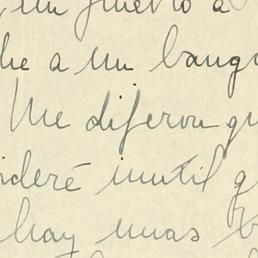 un puesto a
he a un banqu
Me dijeron qu
nderé inutil q
hay unas b